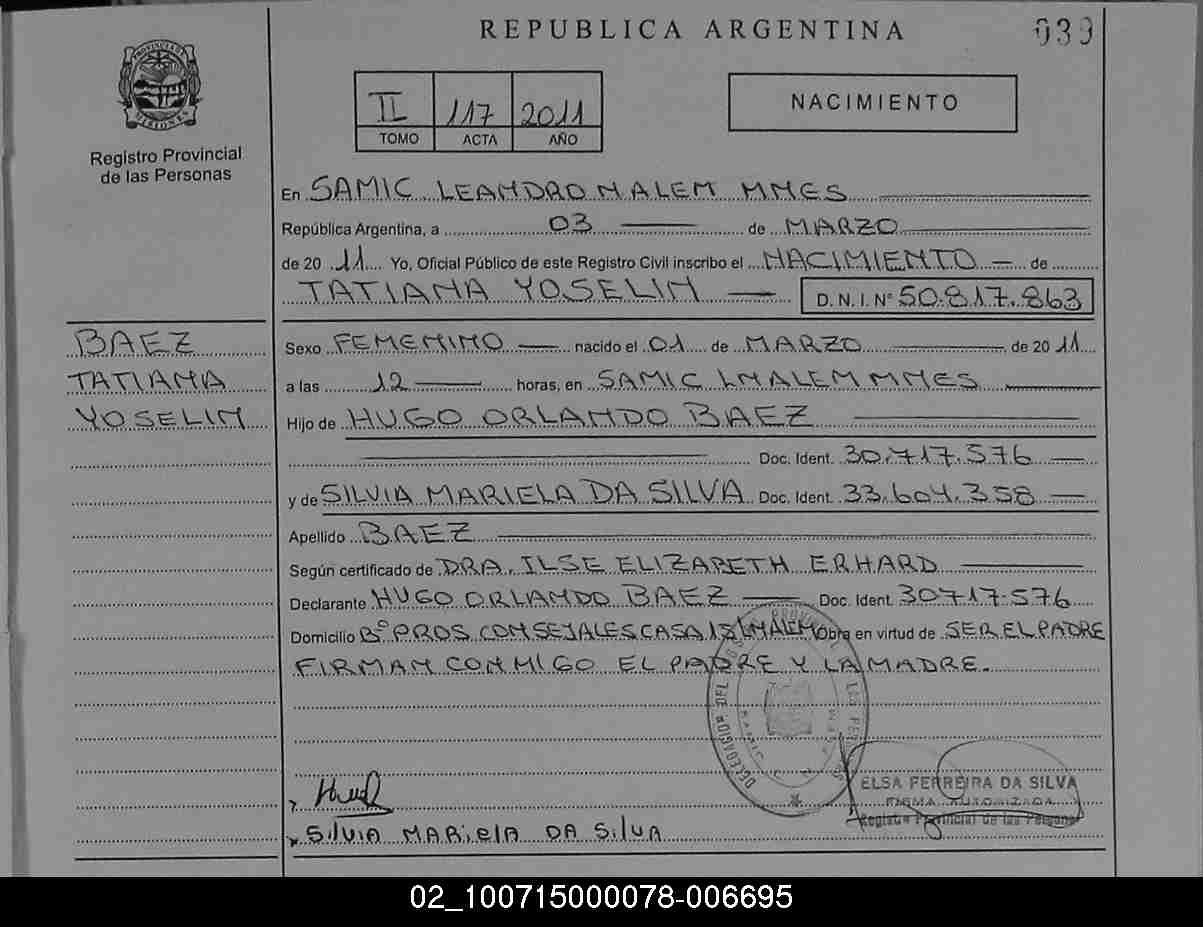 REPUBLICA ARGENTINA
039
PROVINCIA DE
MISIONES
Registro Provincial
de las Personas
II 117 2011
TOMO ACTA AÑO
NACIMIENTO
En SAMIC LEANDRO N ALEM MNES
República Argentina, a 03 de MARZO
de 20 11 Yo, Oficial Público de este Registro Civil inscribo el NACIMIENTO de
TATIANA YOSELIN D.N.I. Nº 50.817.863
BAEZ
TATIANA
YOSELIN
Sexo FEMENINO nacido el 01 de MARZO de 20 11
a las 12 horas, en SAMIC LNALEM MNES
Hijo de HUGO ORLANDO BAEZ
Doc. Ident. 30.717.576
y de SILVIA MARIELA DA SILVA Doc. Ident. 33.604.358
Apellido BAEZ
Según certificado de DRA. ILSE ELIZABETH ERHARD
Declarante HUGO ORLANDO BAEZ Doc. Ident. 30717.576
Domicilio Bº PROS. CONSEJALES CASA 15 LNALEM Obra en virtud de SER EL PADRE
FIRMAN CONMIGO EL PADRE Y LA MADRE.
DELEGACION DEL
ELSA FERREIRA DA SILVA
FIRMA AUTORIZADA
Registro Provincial de las Personas
SilviA MARielA DA SilvA
02_100715000078-006695